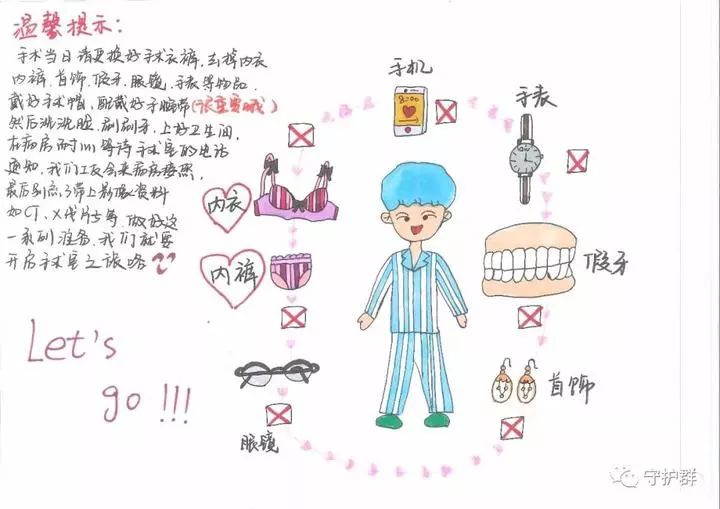 温馨提示:
手术当日请更换好手术衣裤,去掉内衣
内裤、首饰、假牙、眼镜、手表等物品
戴好手术帽,配戴好手腕带(很重要哦)
然后洗洗脸、刷刷牙,上好卫生间,
在病房耐心等待手术室的电话
通知,我们工友会来病房接您,
最后别忘了带上影像资料
如CT、X线片等,做好这
一系列准备,我们就要
开启手术室之旅咯
手机
8:00
手表
内衣
内裤
假牙
眼镜
首饰
Let's
go !!!
守护群